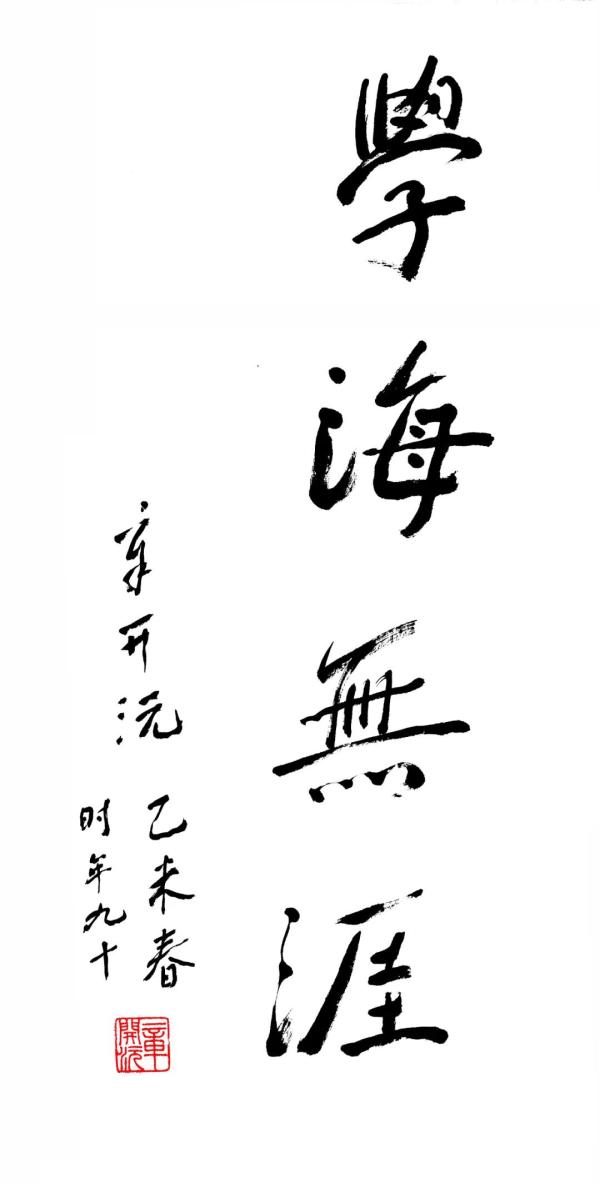 學海無涯
章开沅
乙未春
时年九十
章開沅